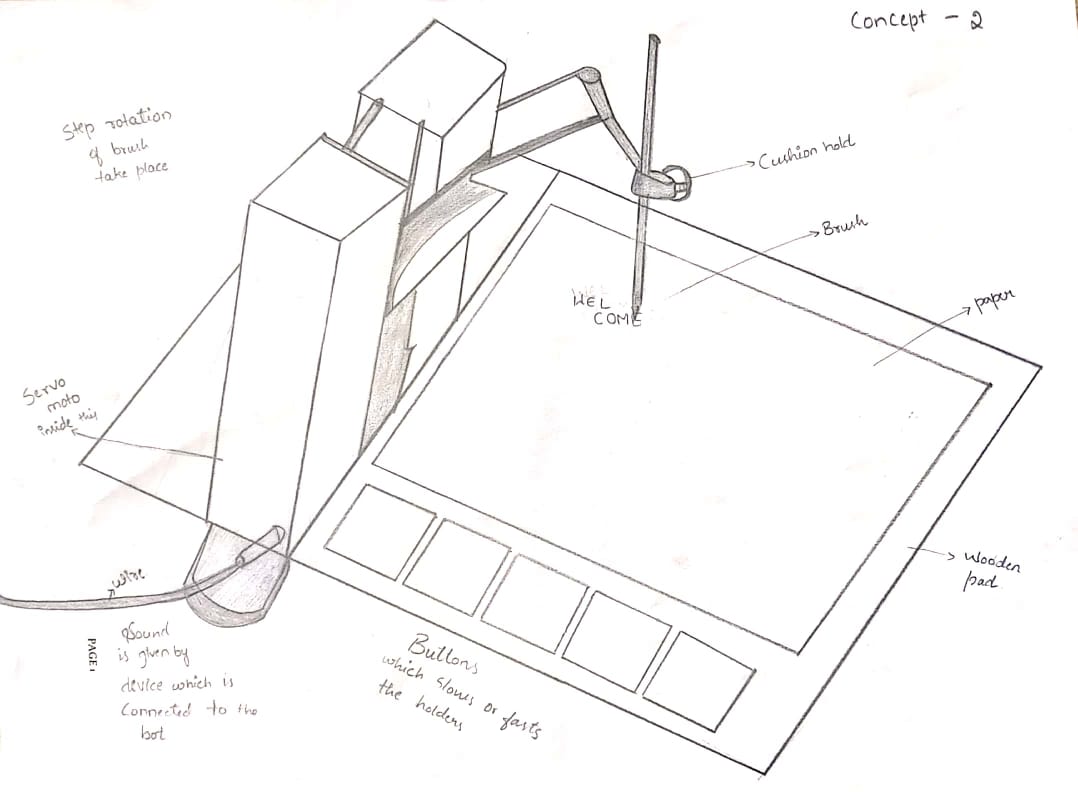 Concept - 2
Step rotation
of brush
take place
Cushion hold
Brush
paper
WEL
COME
Servo
moto
inside this
Wooden
pad
wire
Sound
is given by
device which is
Connected to the
bot
PAGE:
Buttons
which slows or fasts
the holders